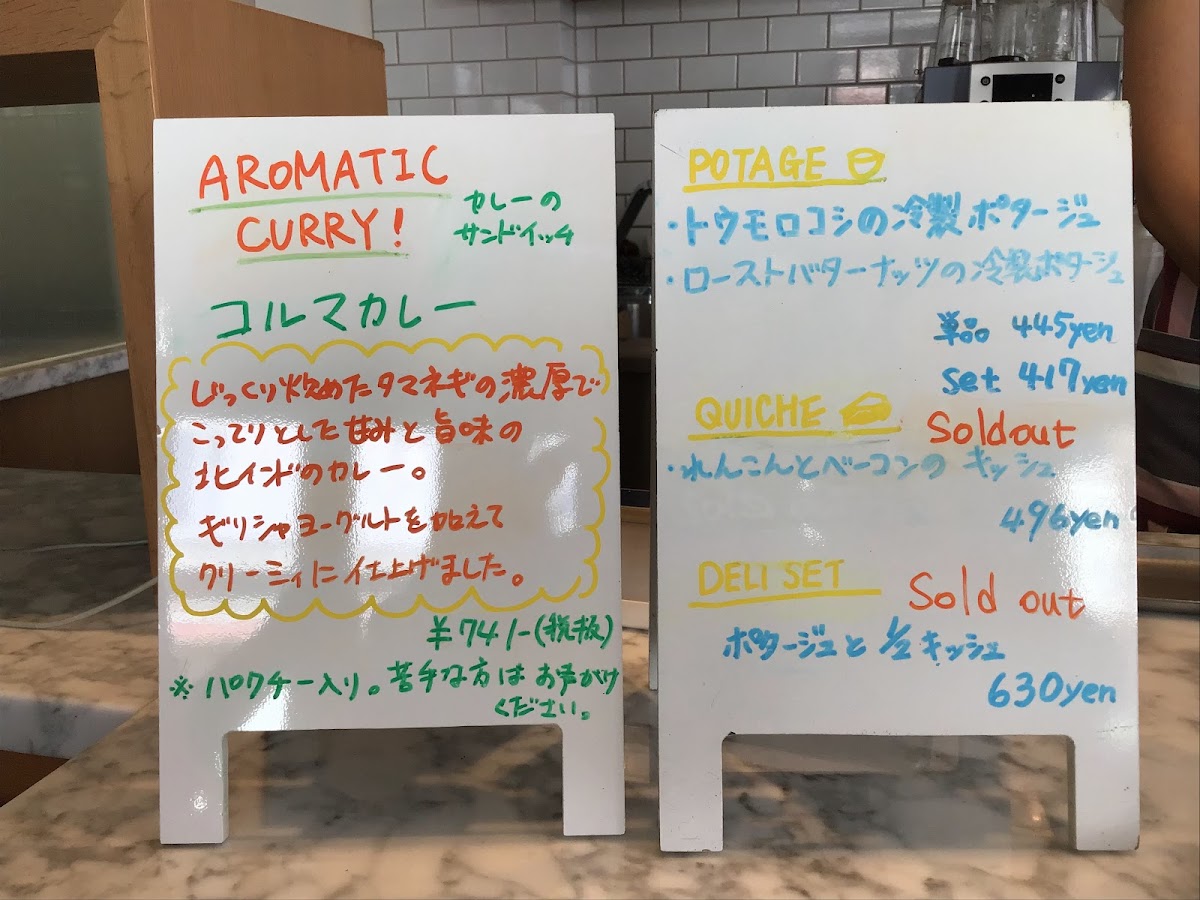 AROMATIC
CURRY!
カレーの
サンドイッチ
コルマカレー
じっくり炒めたタマネギの濃厚で
こってりとした甘みと旨味の
北インドのカレー。
ギリシャヨーグルトを加えて
クリーミィに仕上げました。
¥741-(税抜)
※パクチー入り。苦手な方はお声がけ
ください。
POTAGE
・トウモロコシの冷製ポタージュ
・ローストバターナッツの冷製ポタージュ
単品 445yen
set 417yen
QUICHE Soldout
・れんこんとベーコンのキッシュ
496yen
DELI SET Sold out
ポタージュと 1/2 キッシュ
630yen